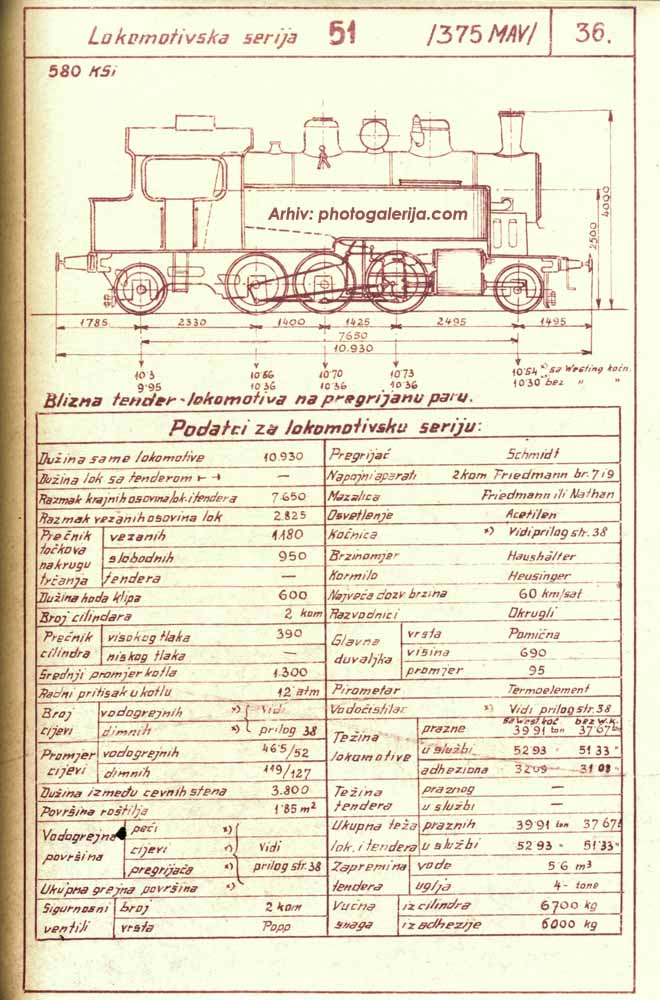 Lokomotivska serija 51 /375 MAV/ 36.
580 KSi
Arhiv: photogalerija.com
4000
2500
1785 2330 1400 1425 2495 1495
7650
10.930
10·3 10·66 10·70 10·73 10·54 *) sa Westing kočn.
9·95 10·36 10·36 10·36 10·30 bez " "
Blizna tender-lokomotiva na pregrijanu paru.
Podatci za lokomotivsku seriju:
Dužina same lokomotive 10.930 Pregrijač Schmidt
Dužina lok sa tenderom — Napojni aparati 2 kom Friedmann br. 7 i 9
Razmak krajnih osovina lok. i tendera 7.650 Mazalica Friedmann ili Nathan
Razmak vezanih osovina lok 2.825 Osvetlenje Acetilen
Prečnik točkova na krugu trčanja vezanih 1.180 Kočnica *) Vidi prilog str. 38
slobodnih 950 Brzinomjer Haushälter
tendera — Kormilo Heusinger
Dužina hoda klipa 600 Najveća dozv brzina 60 km/sat
Broj cilindara 2 kom Razvodnici Okrugli
Prečnik cilindra visokog tlaka 390 Glavna duvaljka vrsta Pomična
niskog tlaka — visina 690
Srednji promjer kotla 1.300 promjer 95
Radni pritisak u kotlu 12 atm Pirometar Termoelement
Broj cijevi vodogrejnih *) Vidi Vodočistilac *) Vidi prilog str. 38
dimnih *) prilog 38 Težina lokomotive sa West. koč. bez W.K.
prazne 39·91 ton 37·67 ton
Promjer cijevi vodogrejnih 46·5/52 u službi 52·93 " 51·33 "
dimnih 119/127 adheziona 32·09 31·08 "
Dužina između cevnih stena 3.800 Težina tendera praznog —
Površina roštilja 1·85 m² u službi —
Vodogrejna površina peći *) Ukupna teža lok. i tendera praznih 39·91 ton 37·67 t
cijevi *) Vidi u službi 52·93 " 51·33 "
pregrijača *) prilog str. 38 Zapremina tendera vode 5·6 m³
Ukupna grejna površina *) uglja 4- tone
Sigurnosni ventili broj 2 kom Vučna snaga iz cilindra 6700 kg
vrsta Popp iz adhezije 6000 kg